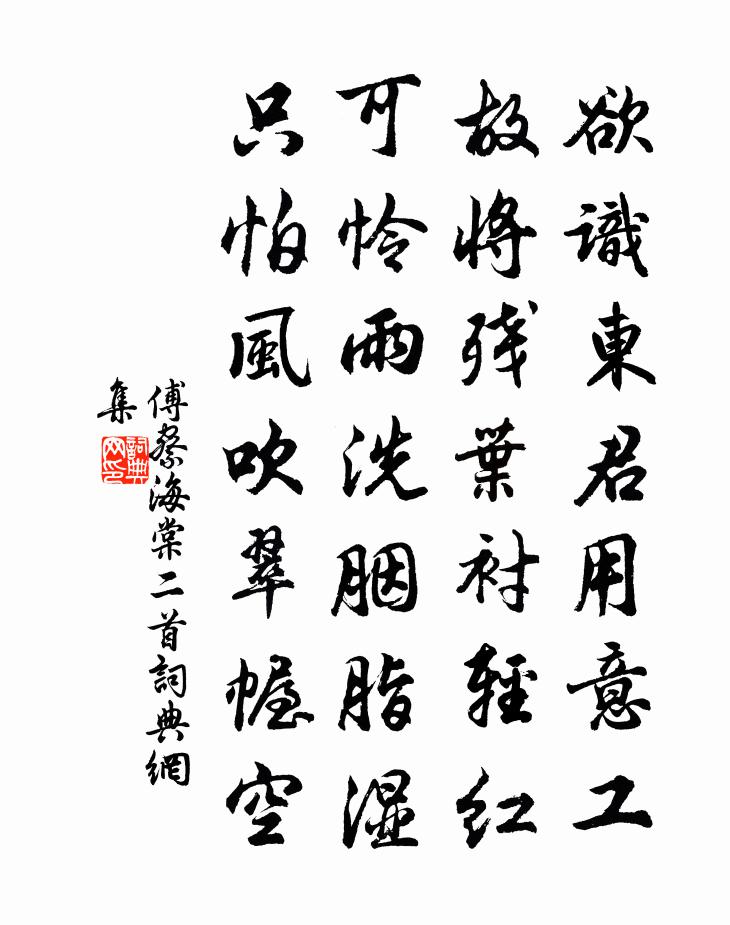 欲識東君用意工
故將残葉衬輕紅
可怜雨洗胭脂湿
只怕風吹翠幄空
傅察海棠二首詞典網
集
詞典
网印